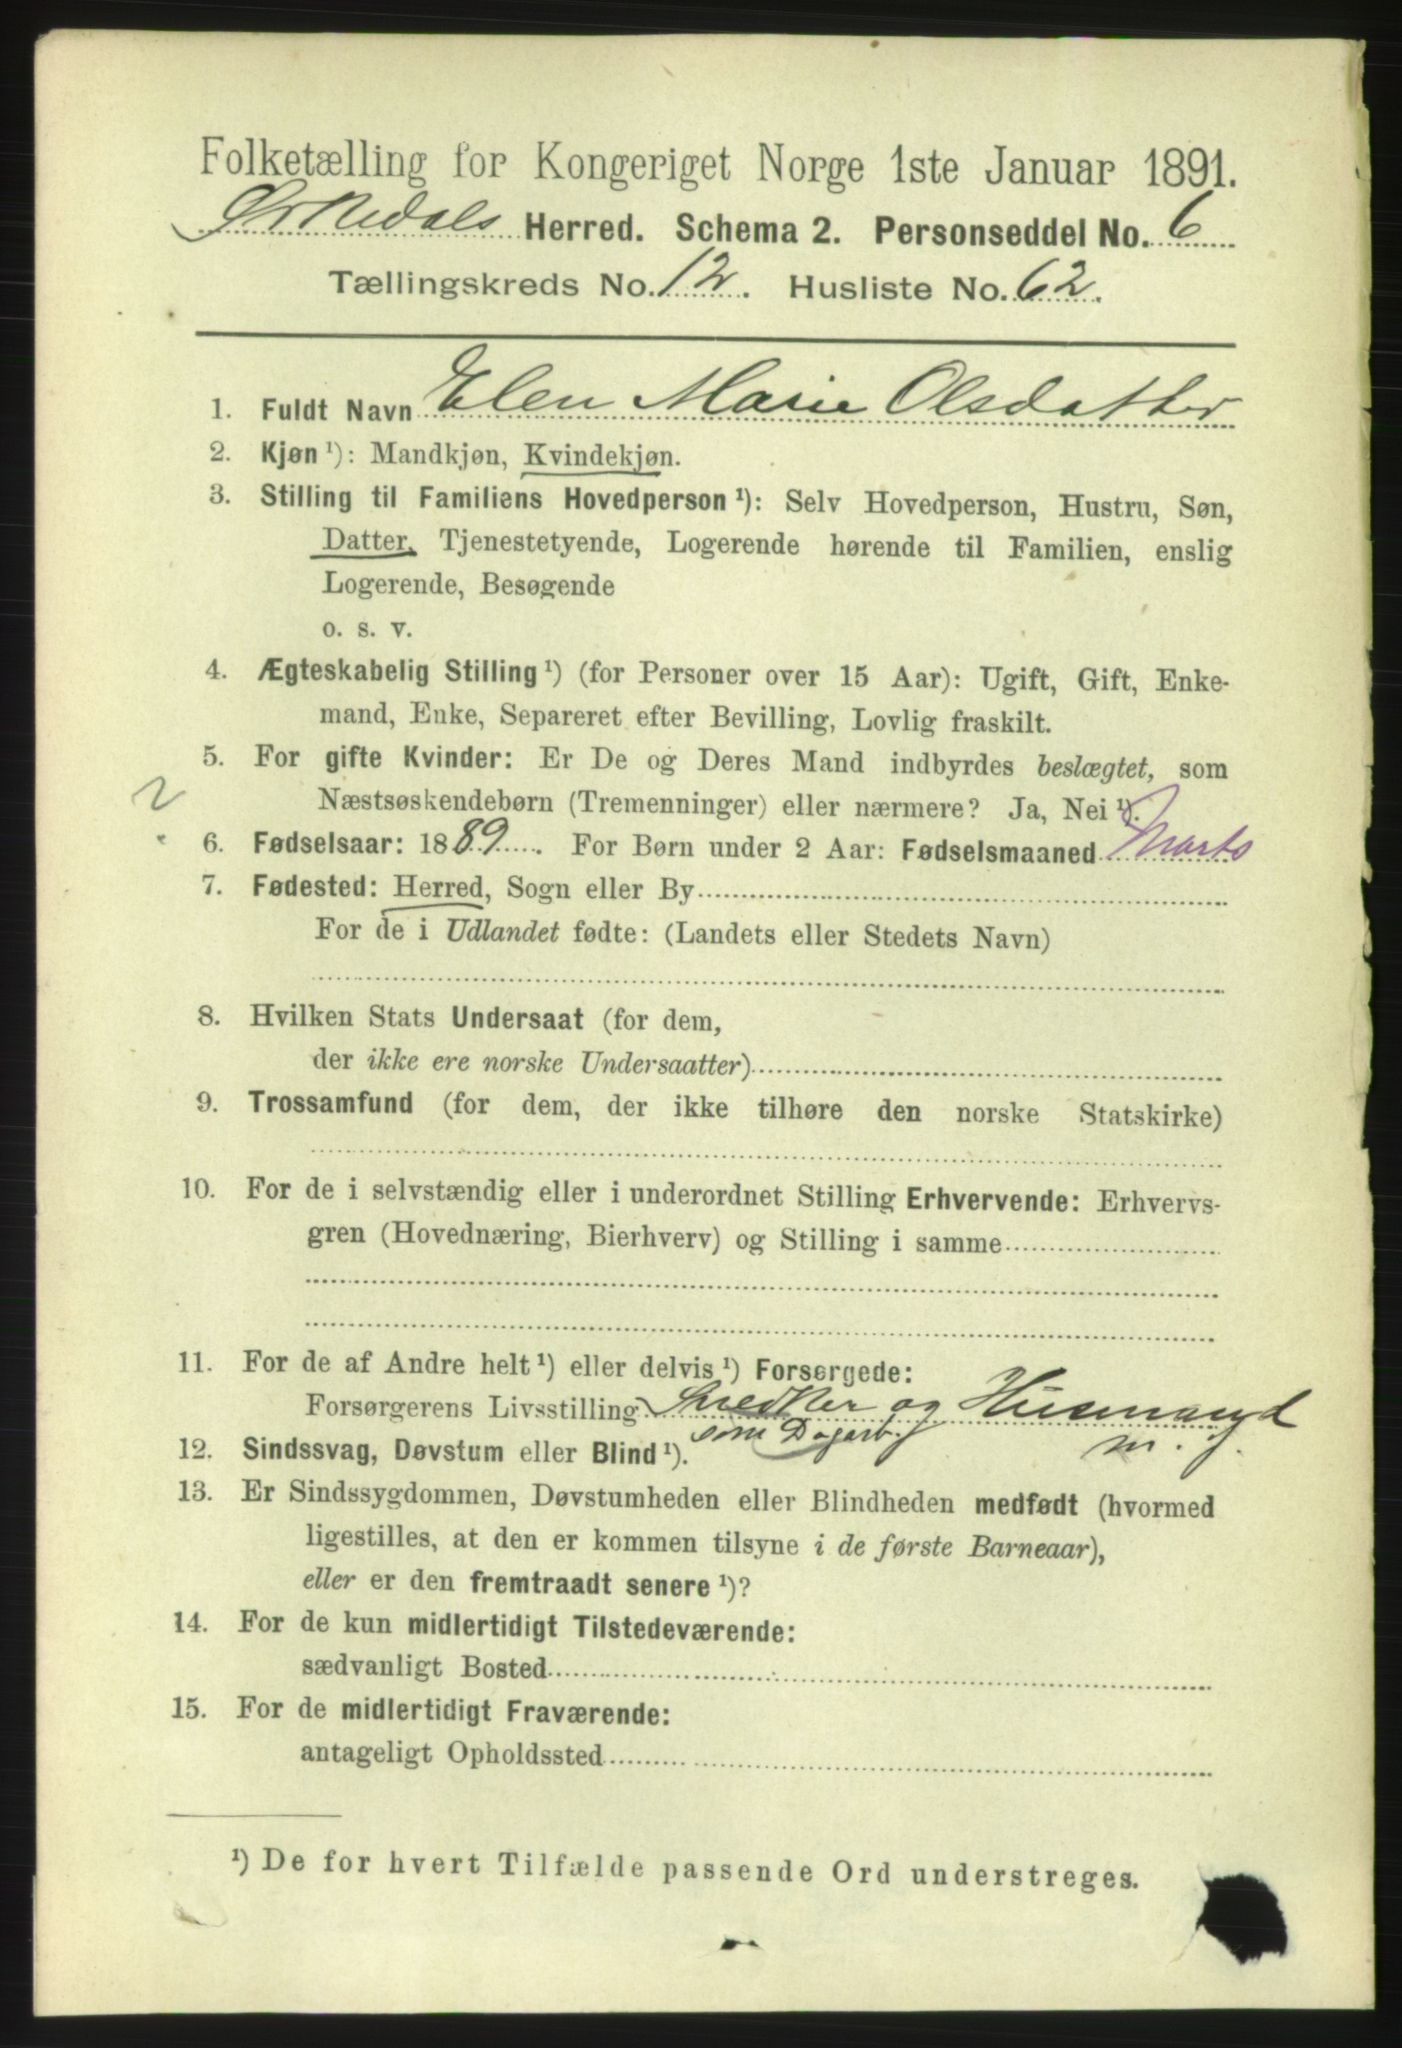 Folketælling for Kongeriget Norge 1ste Januar 1891.
Ørkedals Herred. Schema 2. Personseddel No. 6
Tællingskreds No. 12. Husliste No. 62.
1. Fuldt Navn Elen Marie Olsdatter
2. Kjøn ¹): Mandkjøn, Kvindekjøn.
3. Stilling til Familiens Hovedperson ¹): Selv Hovedperson, Hustru, Søn,
Datter, Tjenestetyende, Logerende hørende til Familien, enslig
Logerende, Besøgende
o. s. v.
4. Ægteskabelig Stilling ¹) (for Personer over 15 Aar): Ugift, Gift, Enke-
mand, Enke, Separeret efter Bevilling, Lovlig fraskilt.
5. For gifte Kvinder: Er De og Deres Mand indbyrdes beslægtet, som
Næstsøskendebørn (Tremenninger) eller nærmere? Ja, Nei ¹).
?
6. Fødselsaar: 1889. For Børn under 2 Aar: Fødselsmaaned Marts
7. Fødested: Herred, Sogn eller By
For de i Udlandet fødte: (Landets eller Stedets Navn)
8. Hvilken Stats Undersaat (for dem,
der ikke ere norske Undersaatter)
9. Trossamfund (for dem, der ikke tilhøre den norske Statskirke)
10. For de i selvstændig eller i underordnet Stilling Erhvervende: Erhvervs-
gren (Hovednæring, Bierhverv) og Stilling i samme
11. For de af Andre helt ¹) eller delvis ¹) Forsørgede:
Forsørgerens Livsstilling Snedker og Husmand
som Dagarb. m. j.
12. Sindssvag, Døvstum eller Blind ¹).
13. Er Sindssygdommen, Døvstumheden eller Blindheden medfødt (hvormed
ligestilles, at den er kommen tilsyne i de første Barneaar),
eller er den fremtraadt senere ¹)?
14. For de kun midlertidigt Tilstedeværende:
sædvanligt Bosted
15. For de midlertidigt Fraværende:
antageligt Opholdssted
¹) De for hvert Tilfælde passende Ord understreges.